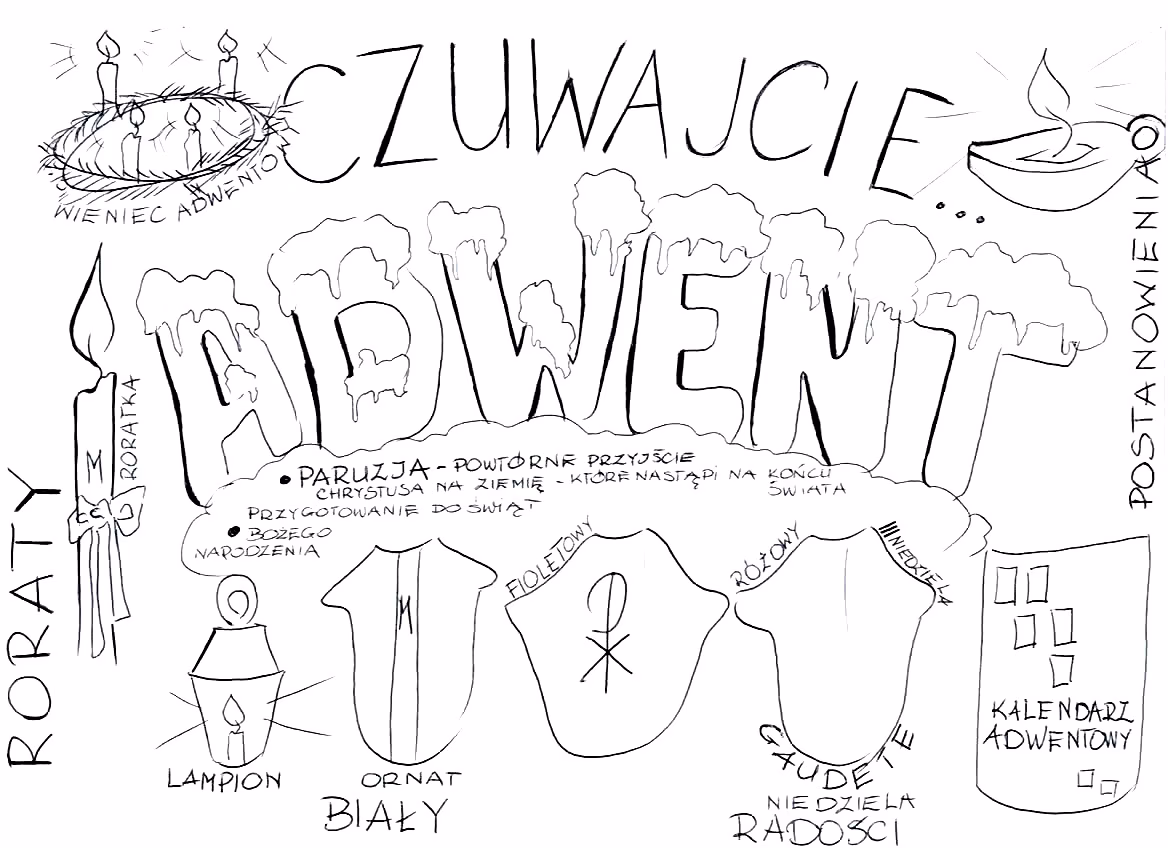 CZUWAJCIE...
WIENIEC ADWENTO
POSTANOWIENIA
ADWENT
RORATKA
M
RORATY
• PARUZJA - POWTÓRNE PRZYJŚCIE
CHRYSTUSA NA ZIEMIĘ - KTÓRE NASTĄPI NA KOŃCU
ŚWIATA
PRZYGOTOWANIE DO ŚWIĄT
• BOŻEGO
NARODZENIA
FIOLETOWY
RÓŻOWY
III NIEDZIELA
M
KALENDARZ
ADWENTOWY
LAMPION
ORNAT
BIAŁY
GAUDETE
NIEDZIELA
RADOŚCI